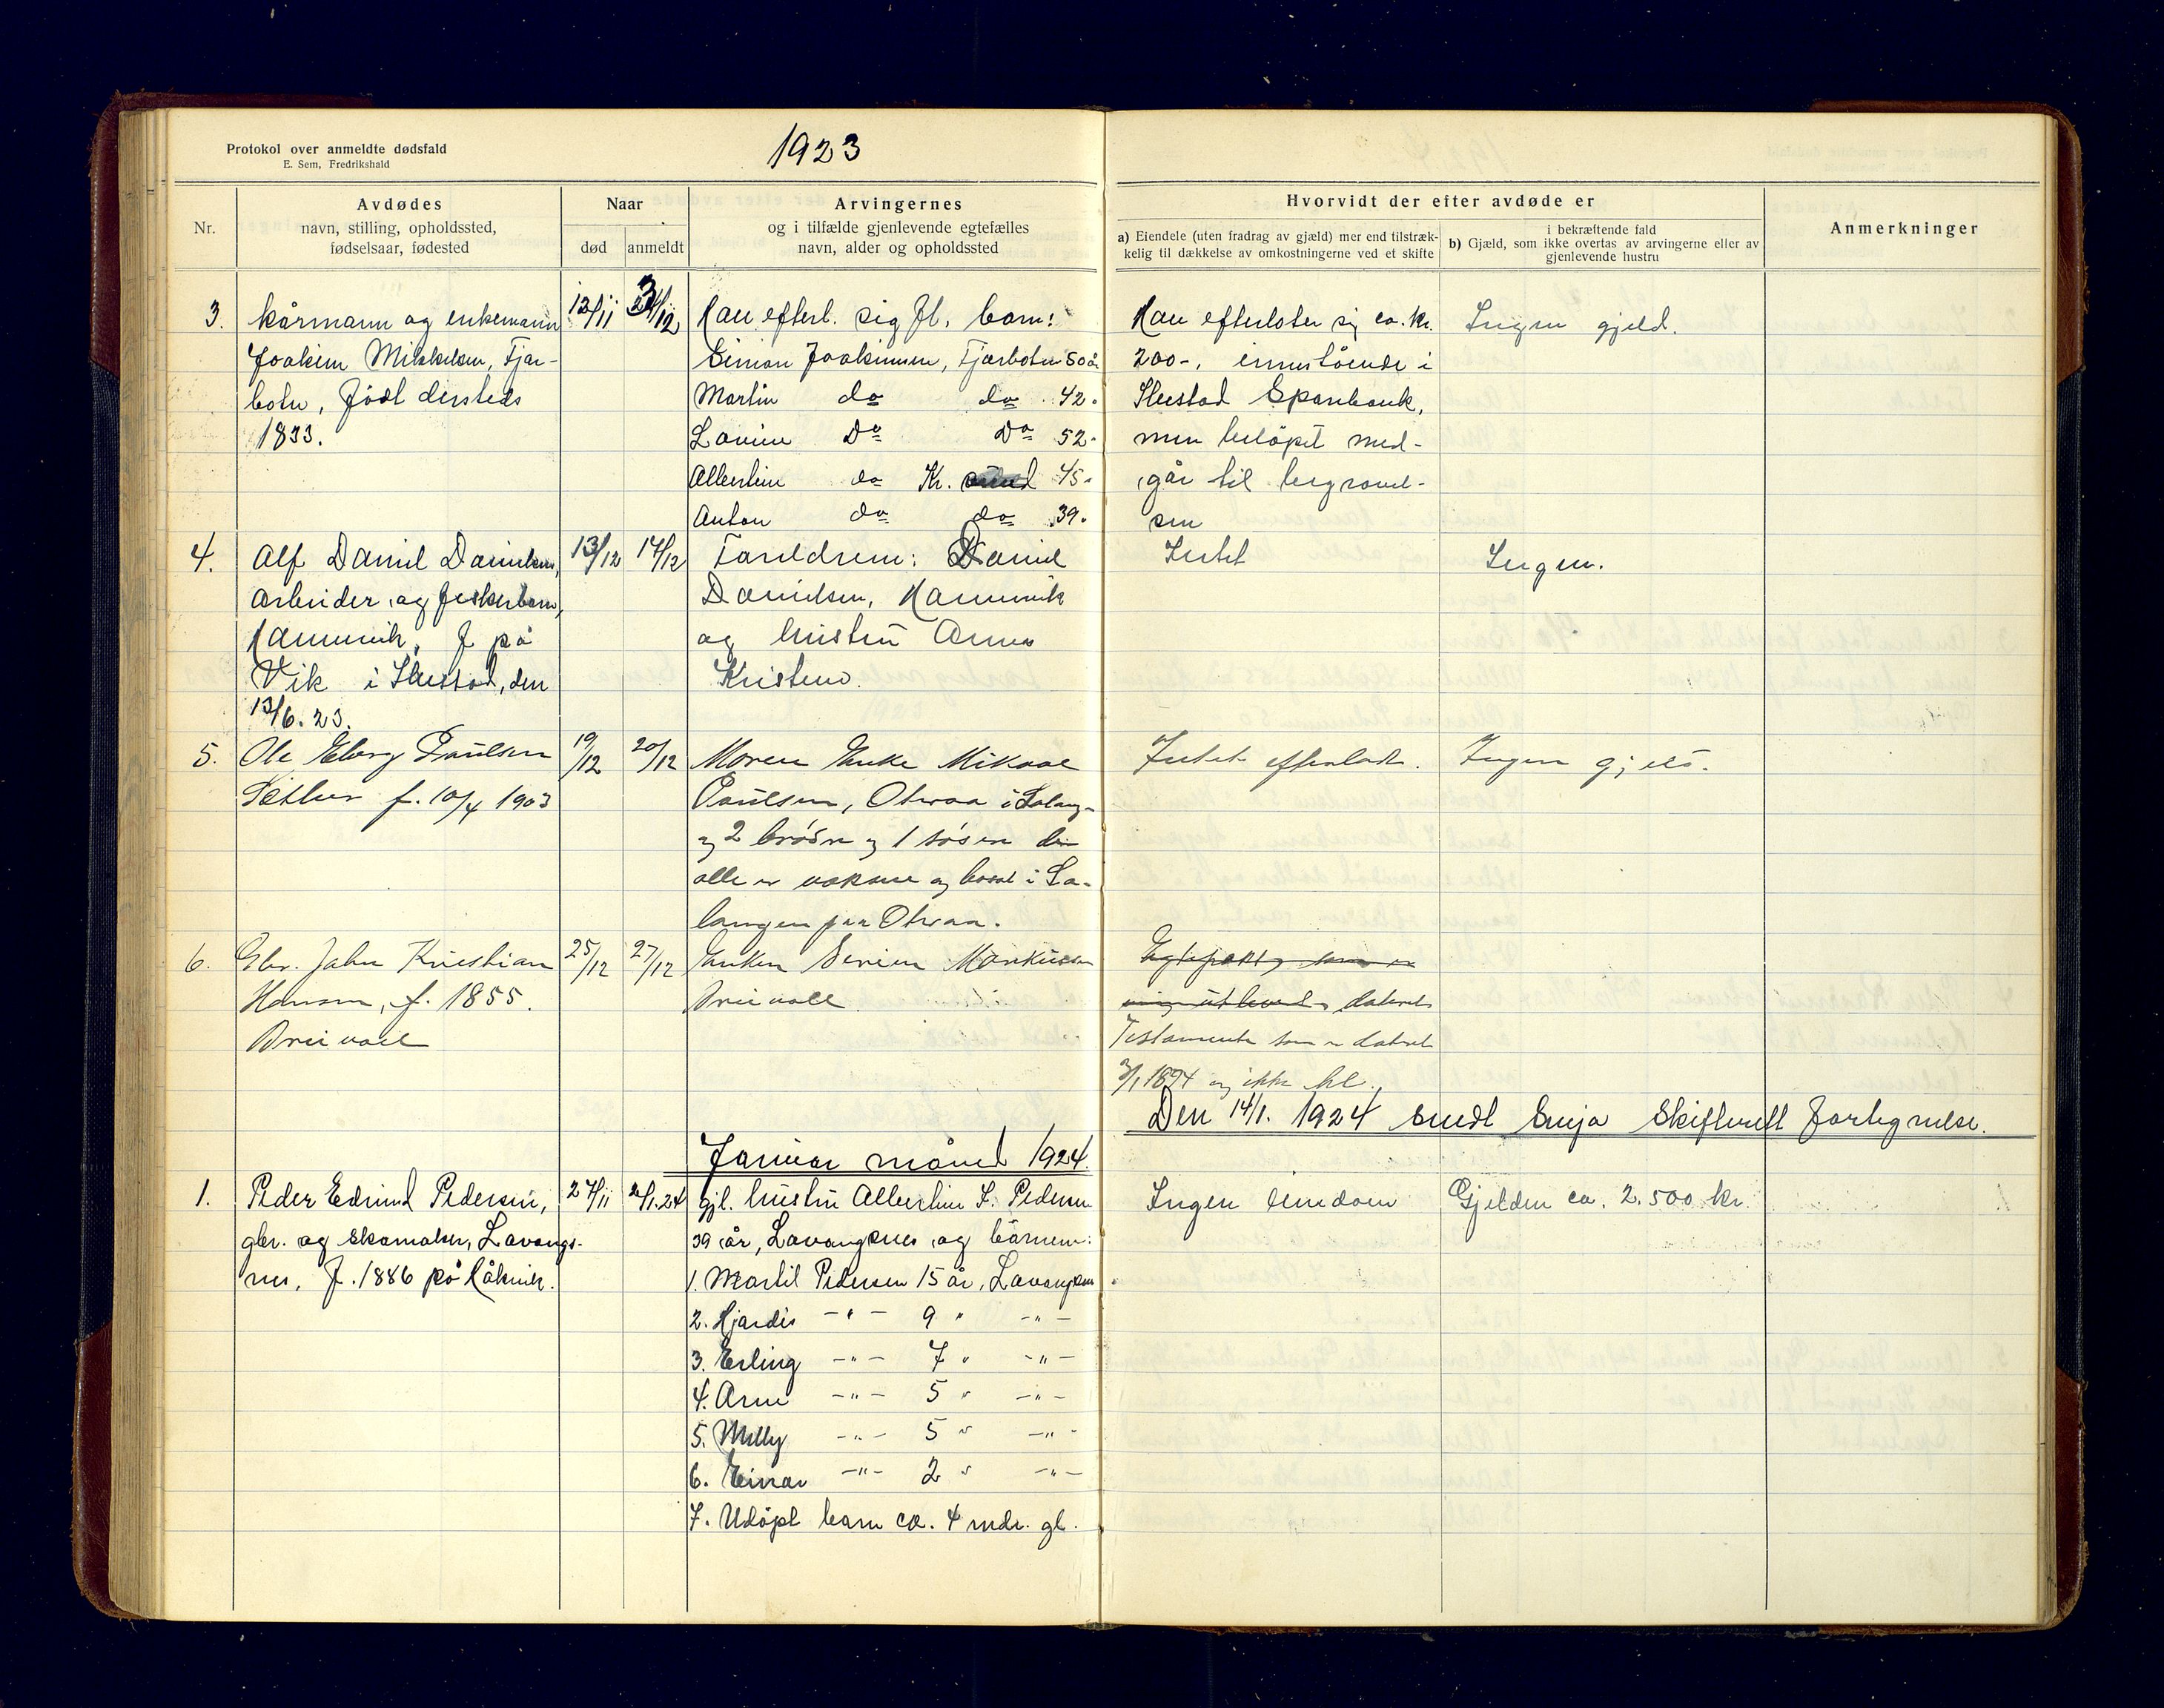 Protokol over anmeldte dødsfald
E. Sem, Fredrikshald
1923
Nr.
Avdødes
navn, stilling, opholdssted,
fødselsaar, fødested
Naar
død
anmeldt
Arvingernes
og i tilfælde gjenlevende egtefælles
navn, alder og opholdssted
Hvorvidt der efter avdøde er
a) Eiendele (uten fradrag av gjæld) mer end tilstræk-
kelig til dækkelse av omkostningerne ved et skifte
i bekræftende fald
b) Gjæld, som ikke overtas av arvingerne eller av
gjenlevende hustru
Anmerkninger
3.
kårmann og enkemann
Joakim Mikkelsen, Tjær-
botn, født dersteds
1833.
12/11
/12
Han efterl. sig fl. barn:
Simon Joakimsen, Tjærbotn 50 å
Martin do do 42.
Lovise Do Do 52.
Albertine do Kr. sund 45.
Anton do do 39.
Han efterloter sig ca. kr.
200-. innestående i
Sparebank,
men beløpet med-
går til begravel-
sen
Ingen gjeld.
4.
Alf Daniel Danielsen,
Arbeider og fiskerbarn,
Hamnvik, f på
Vik i den
13/6. 23.
13/12
14/12
Foreldrene: Daniel
Danielsen, Hamnvik
og hustru Anna
Kristene.
Intet
Ingen.
5.
Ole Eberg Paulsen
f. 10/4 1903
19/12
20/12
Moren Enke Mikaae
Paulsen, i Salang-
og 2 brødre og 1 søster der
alle er voksne og bosat i Sa-
langen paa
Intet efterladt.
Ingen gjeld.
6.
Gbr. Johan Kristian
Hansen, f. 1855.
25/12
27/12
Enken Serine Markussen
Egtepakt, som er
datert
Testamente som er datert
3/1 1894 og ikke
Den 14/1. 1924 sendt Senja Skifterett fortegnelse.
Januar måned 1924.
1.
Peder Edvind Pedersen,
gbr. og skomaker, Lavangs-
nes, f. 1886 på
27/11
2/1.24
gjl. hustru Albertine S. Pedersen
39 år, Lavangsnes og barnene:
1. Martil Pedersen 15 år, Lavangsnes
2. Hjørdis -"- 9 " -"-
3. Erling -"- 7 " -"-
4. Arne -"- 5 " -"-
5. Milly -"- 5 " -"-
6. Einar -"- 2 " -"-
7. Udøpt barn ca. 4 mdr. gl.
Ingen eiendom
Gjelden ca. 2.500 kr.